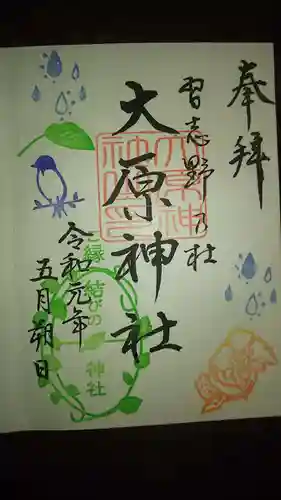 奉拝
習志野乃杜
大原神社
令和元年
五月朔日
ご縁結びの
神社